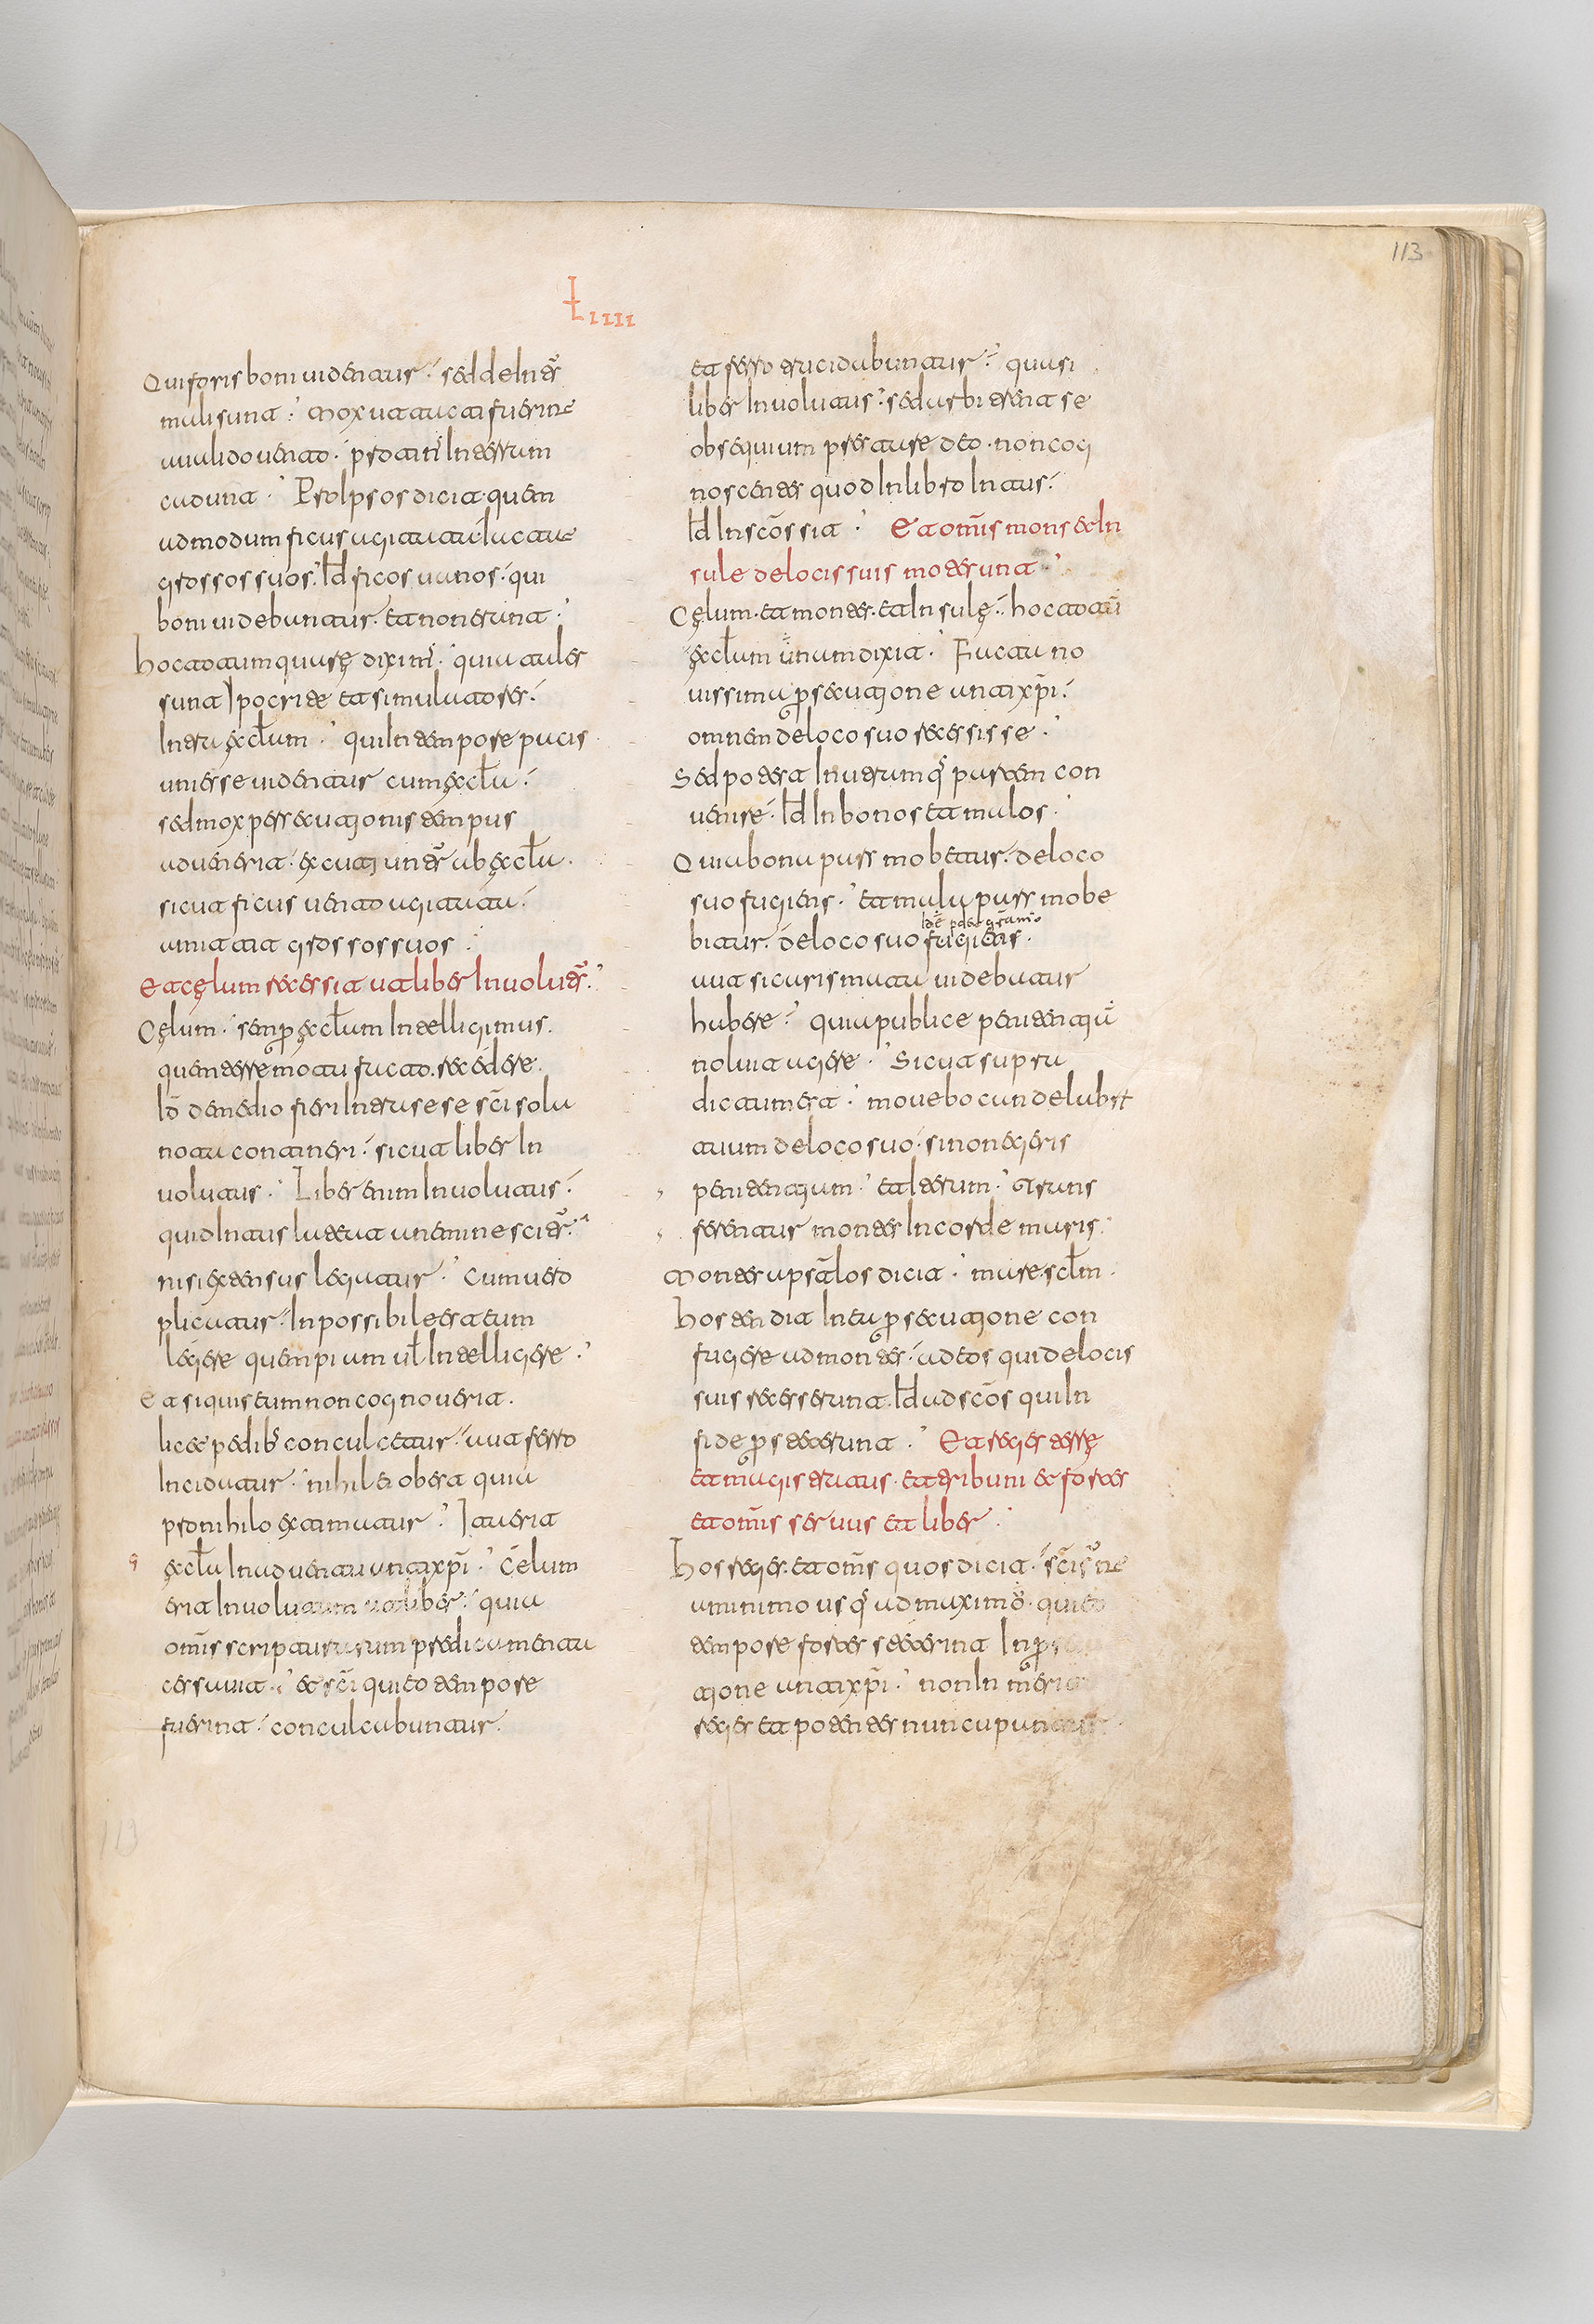 113
Liiii
Qui foris boni uidentur. sed deintꝰ
mali sunt. Mox ut tacti fuerint
a ualido uento. protinꝰ in terram
cadunt. Propter os dicit. quem
admodum ficus agitata iactat
grossos suos. Id ficos uanos. qui
boni uidebantur. et non erunt.
Hoc totum quare diximꝰ. quia tales
sunt ypocrite et simulatores.
Intra ęclam. qui in tempore pacis
uniesse uidentur cum ęcla.
sed mox persecutionis tempus
aduenerit. excutiuntꝰ ab ęcla.
sicut ficus uento agitata.
amittit grossos suos.
Et cęlum recessit ut liber inuoluitꝰ.
Cęlum. semper ęclam intelligimus.
quem terre motu facto. recedere.
Id de medio fieri intra se se sci solu
notu contineri. sicut liber in
uolutus. Liber enim inuolutus.
quid intus lateat a nemine scitꝰ.
nisi extensus legatur. Cum uero
plicatur. inpossibile est eum
legere quempium uel intelligere.
Et si quis eum non cognouerit.
licet pedibꝰ conculcetur. aut ferro
incidatur. nihil ei oberit quia
pro nihilo extimatur. Ita erit
ęcla in aduentu antixpi. Celum
erit inuolutum ut liber. quia
omis scripturarum predicamenta
cessauit. et sci qui eo tempore
fuerint. conculcabuntur.
et ferro trucidabuntur. quasi
liber inuolutus. sed arbitrentur se
obsequium prestare deo. non cog
noscentes quod in libro intus.
Id in sco̅s sit. Et omis mons et in
sule de locis suis mote sunt.
Cęlum. et montes. et insulę. hoc totum
ęclam unum dixit. Facta no
uissima persecutione antixpi.
omnem de loco suo recessisse.
Sed poterit in utramqꝫ partem con
uenire. Id in bonos et malos.
Quia bona pars mobetur. de loco
suo fugiens. et mala pars mobe
bitur. de loco suo fugiens.
aut sicuris mutu uidebatur
habere. quia publice penitentiam
noluit agere. Sicut supra
dictum est. mouebo candelabr
tum de loco suo. si non egeris
penitentium. et iterum. Trans
ferentur montes in corde maris.
Montes upsalos dicit. mare. sclm.
Hos tendit in ea persecutione con
fugere ad montes. ad eos qui de locis
suis recesserunt. Id ad scos qui in
fide persteterunt. Et reges terrę
et magistratus. et tribuni et fortes
et omis seruus et liber.
Hos reges. et omis quos dicit. sci sunt
a minimo usqꝫ ad maximos. qui eo
tempore fortes steterint in perse
tione antixpi. non in merito
reges et potentes nuncupantur.